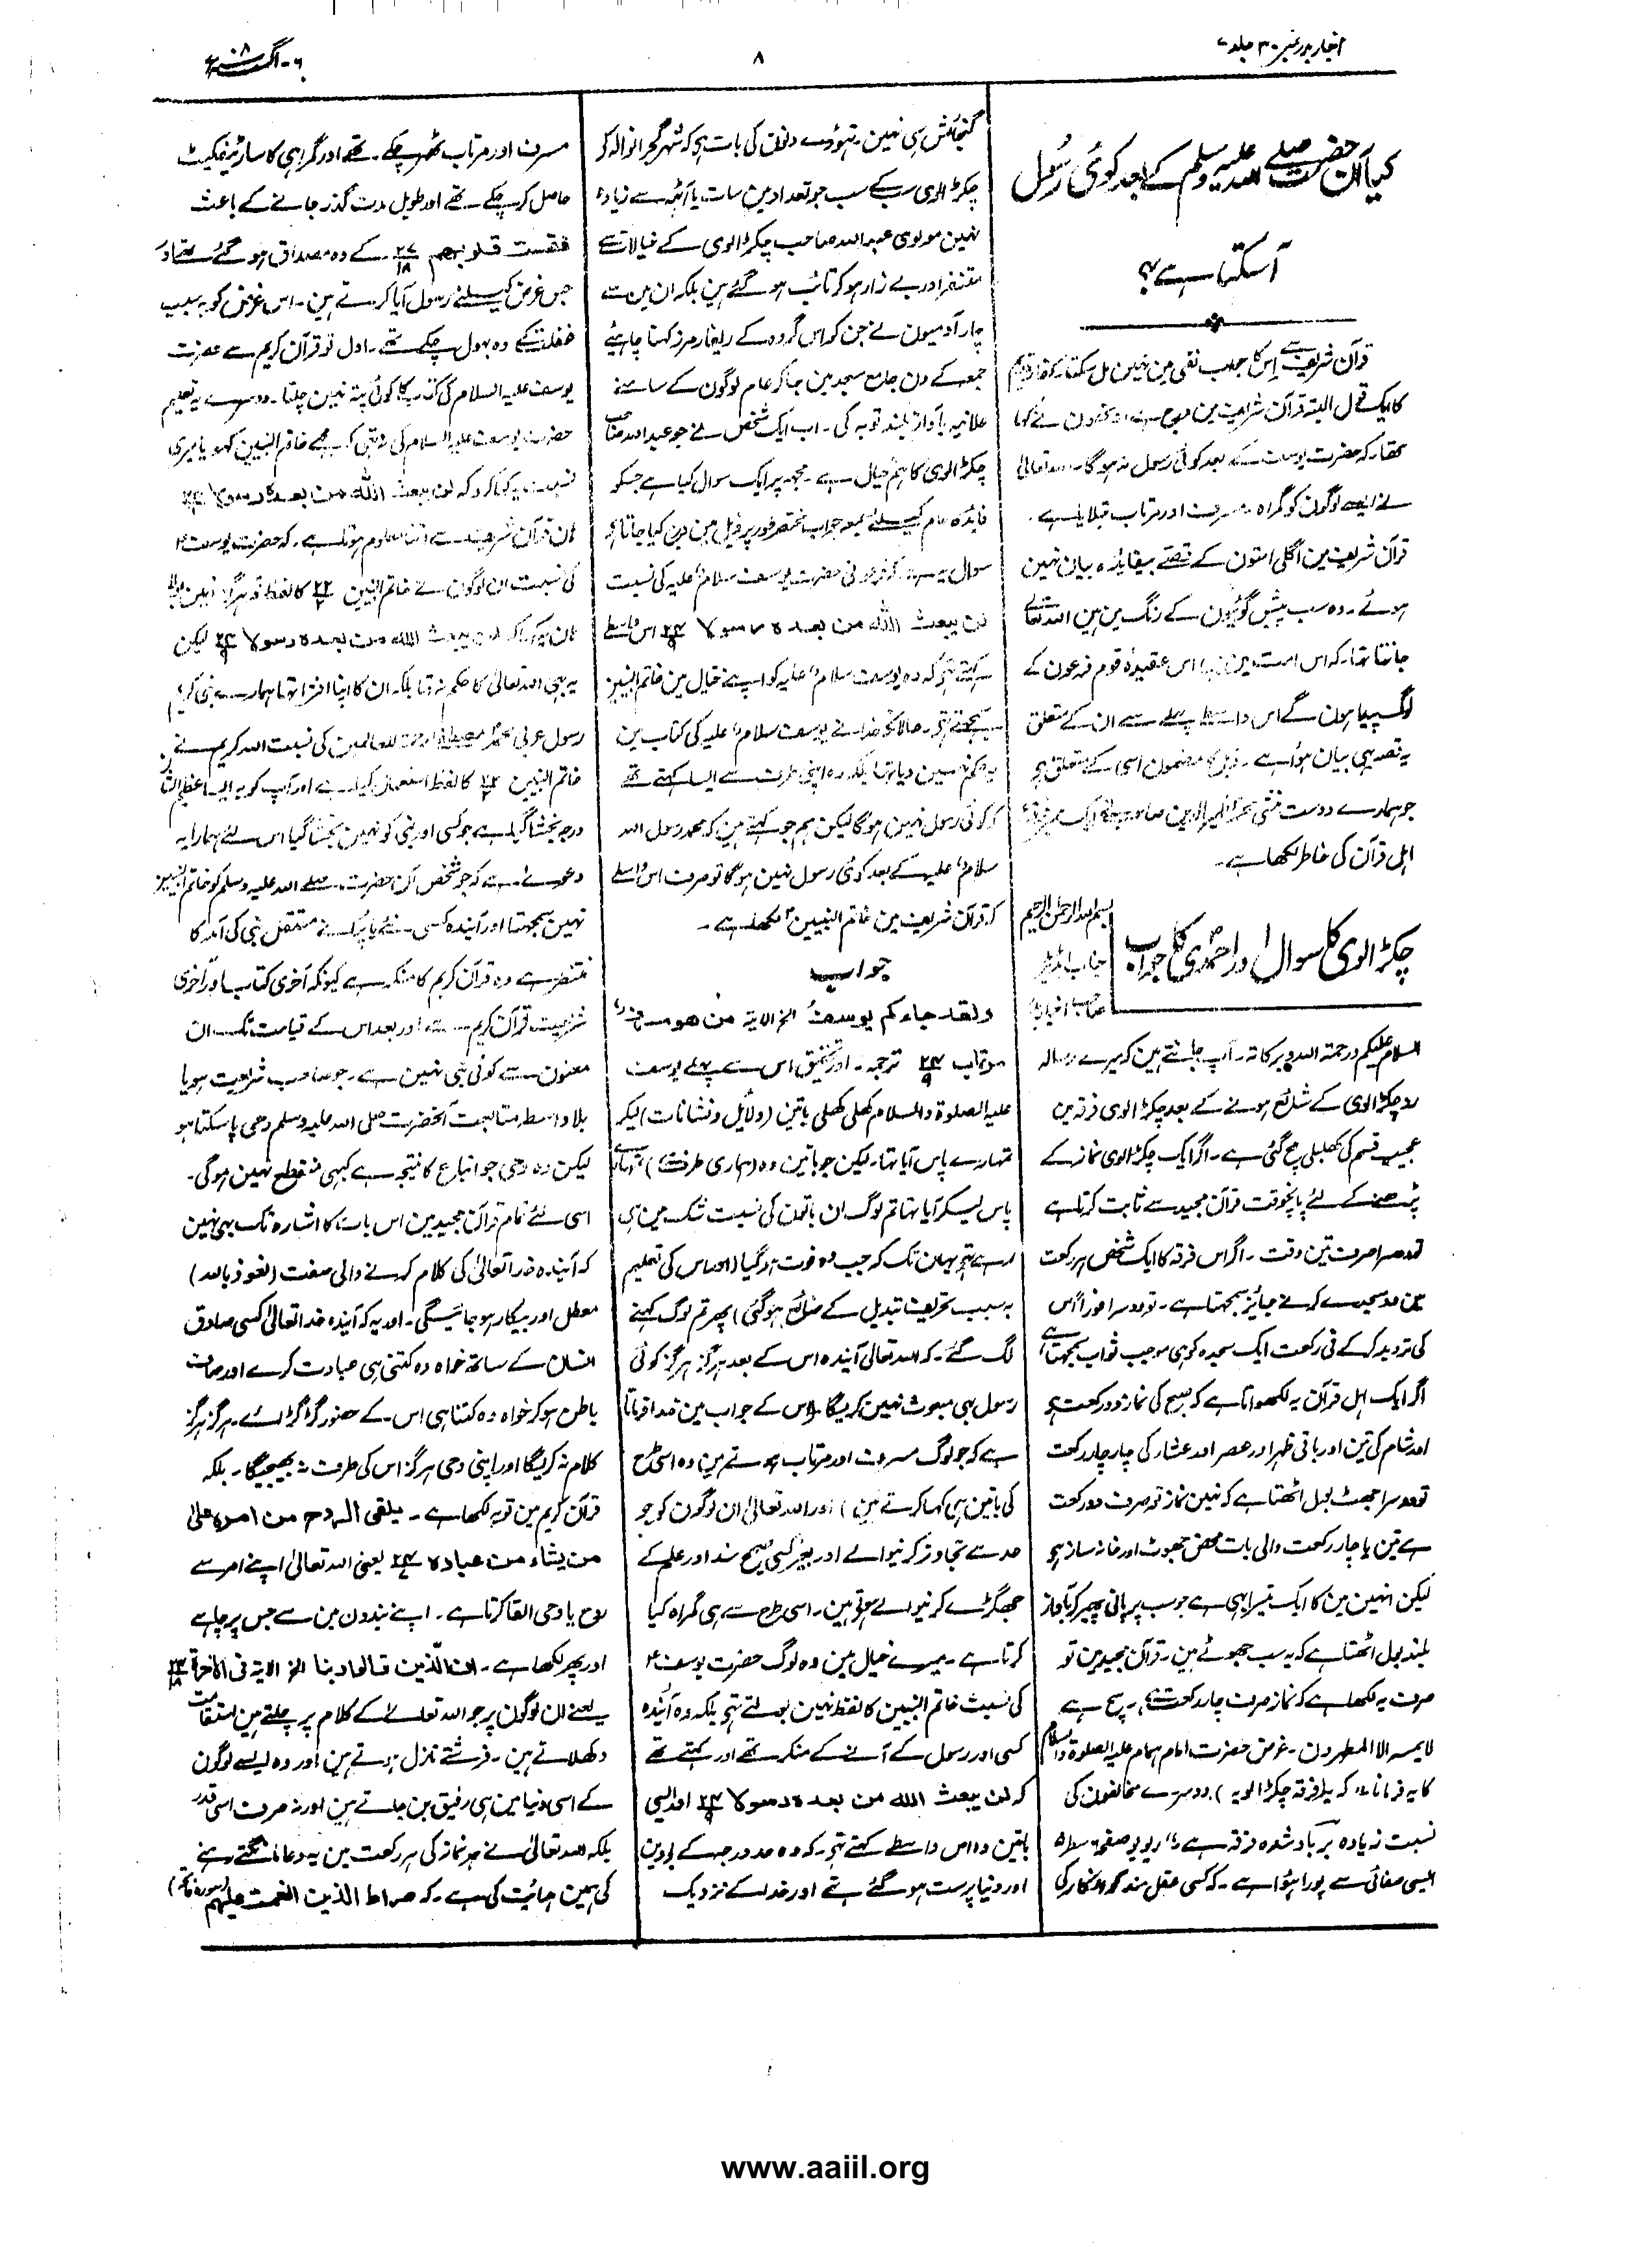 اخبار بدر نمبر ۳۰ جلد ۷
۸
۶ - اگست ۱۹۰۸ء
کیا آن حضرت صلے اللہ علیہ وسلم کے بعد کوئی رسول
آسکتا ہے؟
قرآن شریف سے اس کا جواب نفی مین نہین مل سکتا۔ کفار قدیم
کا ایک قول البتہ قرآن شریف مین موجود ہے۔ اونھون نے کہا
تھا۔ کہ حضرت یوسف کے بعد کوئی رسول نہ ہوگا۔ اللہ تعالیٰ
نے ایسے لوگون کو گمراہ مسرف اور مرتاب بتلایا ہے۔
قرآن شریف مین اگلی امتون کے قصے بیفایدہ بیان نہین
ہوئے۔ وہ سب پیش گوئیون کے رنگ مین ہین اللہ تعالے
جانتا تھا۔ کہ اس امت مین اس عقیدہ قوم فرعون کے
لوگ پیدا ہون گے اس واسطے پہلے سے ان کے متعلق
یہ قصہ بھی بیان ہوا ہے۔ ذیل کا مضمون اسی کے متعلق ہے
جو ہمارے دوست منشی محمد ظہیر الدین صاحب نے ایک
اہل قرآن کی خاطر لکھا ہے۔
چکڑالوی کا سوال اور احمدی کا جواب
بسم اللہ الرحمن الرحیم
جناب اڈیٹر
صاحب اخبار بدر
السلام علیکم ورحمۃ اللہ وبرکاتہ۔ آپ جانتے ہین کہ میرے رسالہ
رد چکڑالوی کے شائع ہونے کے بعد چکڑالوی فرقہ مین
عجیب قسم کی کھلبلی مچ گئی ہے۔ اگر ایک چکڑالوی نماز کے
پڑھنے کے لئے پانچوقت قرآن مجید سے ثابت کرتا ہے
تو دوسرا صرف تین وقت۔ اگر اس فرقہ کا ایک شخص ہر رکعت
مین دو سجدے کرنے جایز سمجھتا ہے۔ تو دوسرا فوراً اس
کی تردید کرکے فی رکعت ایک سجدہ کو ہی موجب ثواب سمجھتا ہے
اگر ایک اہل قرآن یہ لکھواتا ہے کہ صبح کی نماز دو رکعت ہے
اور شام کی تین اور باقی ظہر اور عصر اور عشار کی چار چار رکعت
تو دوسرا جھٹ بول اٹھتا ہے کہ نہین نماز تو صرف دو رکعت
ہے تین یا چار رکعت والی بات محض جھوٹ اور خانہ ساز ہے
لیکن انہین مین کا ایک تیسرا بھی ہے جو سب پر پانی پھیر کر بآواز
بلند بول اٹھتا ہے کہ یہ سب جھوٹے ہین۔ قرآن مجید مین تو
صرف یہ لکھا ہے کہ نماز صرف چار رکعت ہے۔ سچ ہے
لا یمسہ الا المطہرون۔ غرض حضرت امام ہمام علیہ الصلوۃ والسلام
کا یہ فرمانا کہ یہ (فرقہ چکڑالویہ) دوسرے مخالفون کی
نسبت زیادہ برباد شدہ فرقہ ہے (ریویو صفحہ سطر
ایسی صفائی سے پورا ہوا ہے۔ کہ کسی عقل مند کو انکار کی
گنجائش ہی نہین۔ تھوڑے دنون کی بات ہے کہ شہر گجرانوالہ کے
چکڑالوی سب کے سب جو تعداد مین سات یا آٹھ سے زیادہ
نہین مولوی عبد اللہ صاحب چکڑالوی کے خیالات سے
متنفر اور بے زار ہوکر تائب ہو گئے ہین بلکہ ان مین سے
چار آدمیون نے جن کو اس گروہ کے ریفارمرز کہنا چاہیئے
جمعہ کے دن جامع مسجد مین جاکر عام لوگون کے سامنے
علانیہ بآواز بلند توبہ کی۔ اب ایک شخص نے جو عبد اللہ صاحب
چکڑالوی کا ہم خیال ہے۔ مجھ پر ایک سوال کیا ہے جسکو
فایدہ عام کیلئے بمعہ جواب مختصر طور پر ذیل مین درج کیا جاتا ہے
سوال یہ ہے۔ کہ فرعونی حضرت یوسف سلامٌ علیہ کی نسبت
لن یبعث اللہ من بعدہ رسولا ۲۴/۹ اس واسطے
کہتے تھے کہ وہ یوسف سلامٌ علیہ کو اپنے خیال مین خاتم النبیین
سمجھتے تھے۔ حالانکہ خدا نے یوسف سلامٌ علیہ کی کتاب مین
یہ حکم نہین دیا تھا بلکہ وہ اپنی طرف سے ایسا کہتے تھے
کہ کوئی رسول نہین ہوگا لیکن ہم جو کہتے ہین کہ محمد رسول اللہ
سلامٌ علیہ کے بعد کوئی رسول نہین ہوگا تو صرف اس واسطے
کہ قرآن شریف مین خاتم النبیین لکھا ہے۔
جواب
ولقد جاء کم یوسف الخ الایۃ من ھو مسرف
مرتاب ۲۴/۹ ترجمہ۔ اور تحقیق اس سے پہلے یوسف
علیہ الصلوۃ والسلام کھلی کھلی باتین (دلائل و نشانات) لیکر
تمہارے پاس آیا تھا۔ لیکن جو باتین وہ (ہماری طرف سے) تمہارے
پاس لیکر آیا تھا تم لوگ ان باتون کی نسبت شک مین ہی
رہے تھے یہان تک کہ جب وہ فوت ہو گیا (اور اس کی تعلیم
بہ سبب تحریف تبدیل کے ضائع ہوگئی) پھر تم لوگ کہنے
لگ گئے۔ کہ اللہ تعالیٰ آیندہ اس کے بعد ہرگز ہرگز کوئی
رسول ہی مبعوث نہین کریگا (اس کے جواب مین خدا فرماتا
ہے کہ جو لوگ مسرف اور مرتاب ہوتے ہین وہ اسی طرح
کی باتین ہی کہا کرتے ہین) اور اللہ تعالیٰ ان لوگون کو جو
حد سے تجاوز کرنیوالے اور بغیر کسی صحیح سند اور علم کے
جھگڑے کرنیوالے ہوتے ہین۔ اسی طرح سے ہی گمراہ کیا
کرتا ہے۔ میرے خیال مین وہ لوگ حضرت یوسف ؑ
کی نسبت خاتم النبیین کا لفظ نہین بولتے تھے بلکہ وہ آئندہ
کسی اور رسول کے آنے کے منکر تھے اور کہتے تھے
کہ لن یبعث اللہ من بعدہ رسولا ۲۴/۹ اور ایسی
باتین وہ اس واسطے کہتے تھے۔ کہ وہ حد درجہ کے بیدین
اور دنیا پرست ہو گئے تھے اور خدا کے نزدیک
مسرف اور مرتاب ٹھہر چکے تھے اور گمراہی کا سارٹیفکیٹ
حاصل کر چکے تھے اور طویل مدت گذر جانے کے باعث
فقست قلوبہم ۲۷/۱۸ کے وہ مصداق ہو گئے تھے اور
جس غرض کیلئے رسول آیا کرتے ہین۔ اس غرض کو بہ سبب
غفلت کے وہ بھول چکے تھے۔ اول تو قرآن کریم سے حضرت
یوسف علیہ السلام کی کتاب کا کوئی پتہ نہین چلتا۔ دوسرے یہ تعلیم
حضرت یوسف علیہ السلام کی نہ تھی کہ مجھے خاتم النبیین کہو یا میری
نسبت یہ کہا کرو کہ لن یبعث اللہ من بعدہ رسولا ۲۴/۹
ہان قرآن شریف سے اتنا معلوم ہوتا ہے۔ کہ حضرت یوسف ؑ
کی نسبت ان لوگون نے خاتم النبیین ۲۲/۲ کا لفظ تو ہرگز نہین بولا
ہان یہ کہا کہ لن یبعث اللہ من بعدہ رسولا ۲۴/۹ لیکن
یہ بھی اللہ تعالیٰ کا حکم نہ تھا بلکہ ان کا اپنا افترا تھا ہمارے نبی کریم
رسول عربی محمد مصطفےٰ رحمۃ للعالمین کی نسبت اللہ کریم نے
خاتم النبیین ۲۲/۲ کا لفظ استعمال کیا ہے اور آپ کو یہ ایسا عظیم الشان
درجہ بخشا گیا ہے جو کسی اور نبی کو نہین بخشا گیا اس لئے ہمارا یہ
دعوےٰ ہے کہ جو شخص آن حضرت صلے اللہ علیہ وسلم کو خاتم النبیین
نہین سمجھتا اور آیندہ کسی نئے یا پرانے مستقل نبی کی آمد کا
منتظر ہے وہ قرآن کریم کا منکر ہے کیونکہ آخری کتاب اور آخری
شریعت قرآن کریم ہے اور بعد اس کے قیامت تک ان
معنون سے کوئی نبی نہین ہے۔ جو صاحب شریعت ہو یا
بلا واسطہ متابعت آنحضرت صلی اللہ علیہ وسلم وحی پا سکتا ہو
لیکن وہ وحی جو اتباع کا نتیجہ ہے کبھی منقطع نہین ہوگی۔
اسی لئے تمام قرآن مجید مین اس بات کا اشارہ تک بھی نہین
کہ آیندہ خدا تعالیٰ کی کلام کرنے والی صفت (نعوذ باللہ)
معطل اور بیکار ہو جائیگی۔ اور یہ کہ آیندہ خدا تعالیٰ کسی صادق
انسان کے ساتھ خواہ وہ کتنی ہی عبادت کرے اور صاف
باطن ہوکر خواہ وہ کتنا ہی اس کے حضور گڑگڑائے۔ ہرگز ہرگز
کلام نہ کریگا اور اپنی وحی ہرگز اس کی طرف نہ بھیجیگا۔ بلکہ
قرآن کریم مین تو یہ لکھا ہے۔ یلقی الروح من امرہ علیٰ
من یشاء من عبادہ ۲۴ یعنی اللہ تعالیٰ اپنے امر سے
روح یا وحی القا کرتا ہے۔ اپنے بندون مین سے جس پر چاہے
اور پھر لکھا ہے۔ ان الذین قالوا ربنا الخ الایۃ فی الاخرۃ ۲۴/۱۸
یعنے ان لوگون پر جو اللہ تعالےٰ کے کلام پر چلتے ہین استقامت
دکھلاتے ہین۔ فرشتے نازل ہوتے ہین اور وہ ایسے لوگون
کے اسی دنیا مین ہی رفیق بن جاتے ہین اور نہ صرف اسی قدر
بلکہ اللہ تعالیٰ نے ہر نماز کی ہر رکعت مین یہ دعا مانگتے رہنے
کی ہمین ہدائت کی ہے۔ کہ صراط الذین انعمت علیہم (سورہ فاتحہ)
www.aaiil.org